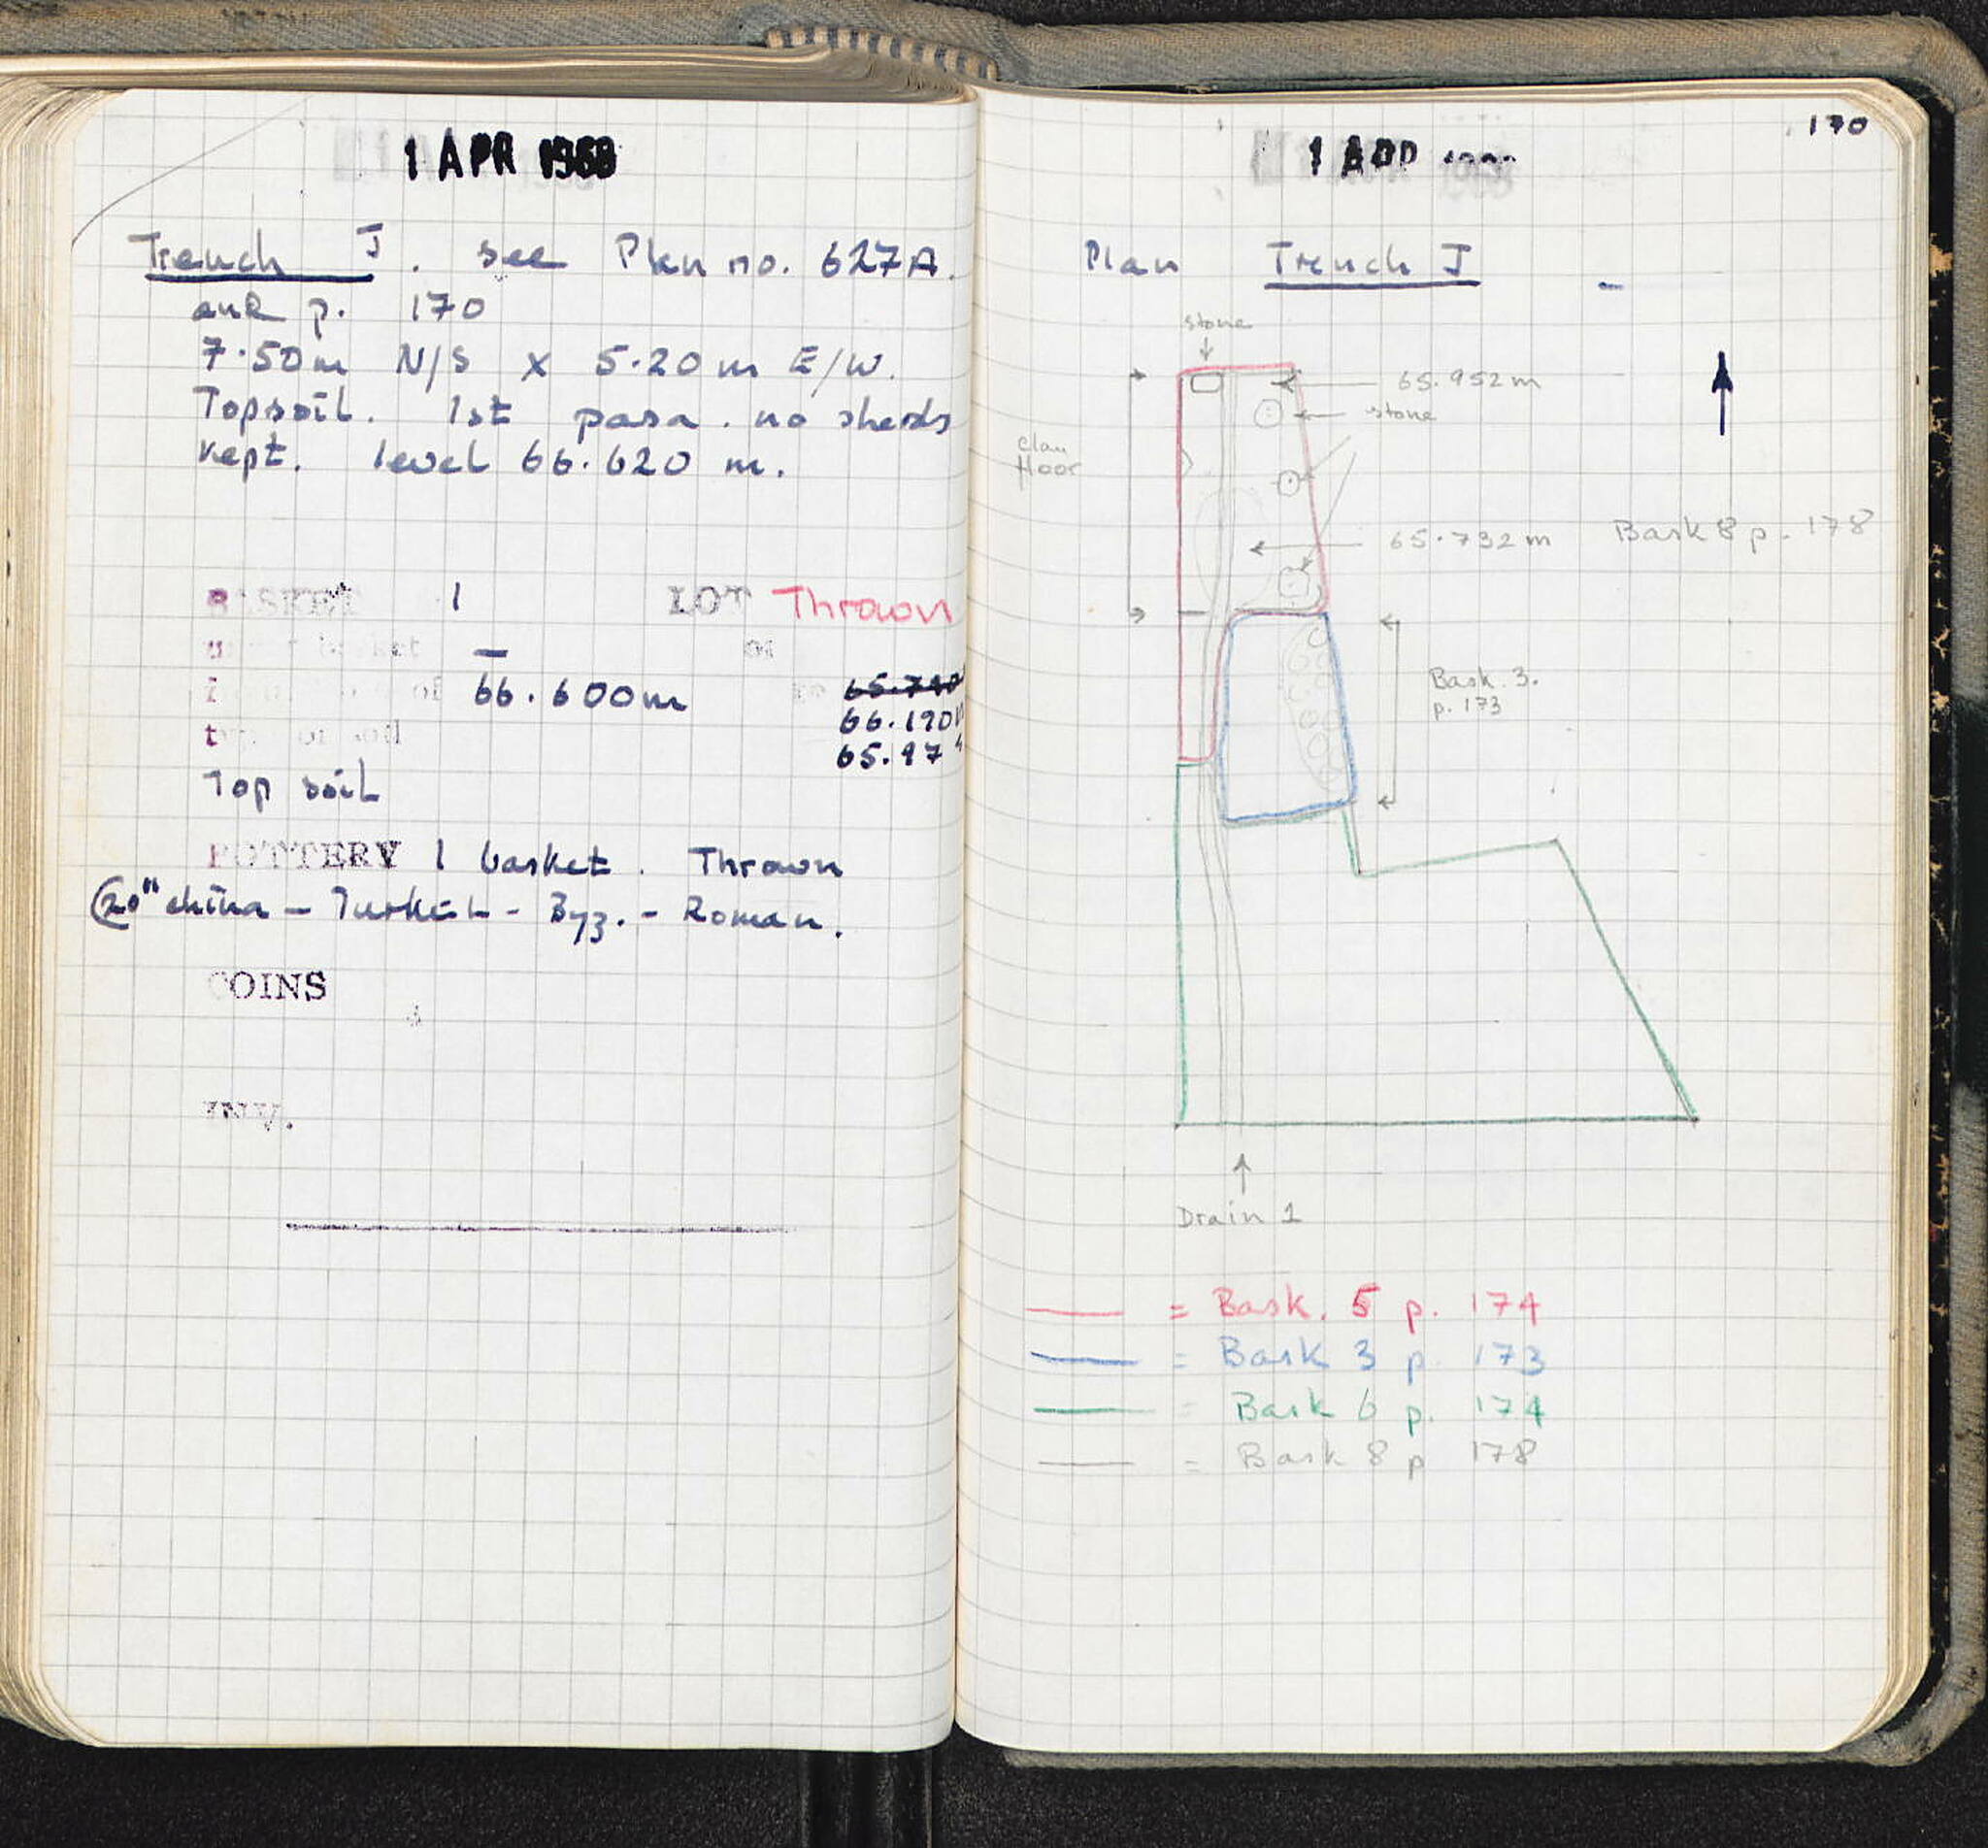 1 APR 1968
Trench J. see Plan no. 627A.
and p. 170
7.50m N/S x 5.20m E/W.
Topsoil. 1st pass. no sherds
kept. level 66.620 m.
BASKET 1 LOT Thrown
under basket — or
of 66.600m to 65.740
66.190m
65.97
type of soil
Top soil
POTTERY 1 basket. Thrown
China - Turkish - Byz. - Roman.
COINS
INV.
170
1 APR
Plan Trench J
stone
65.952m
stone
floor
65.732m Bask 8 p. 178
Bask. 3.
p. 173
Drain 1
= Bask. 5 p. 174
= Bask 3 p 173
= Bask 6 p. 174
= Bask 8 p 178